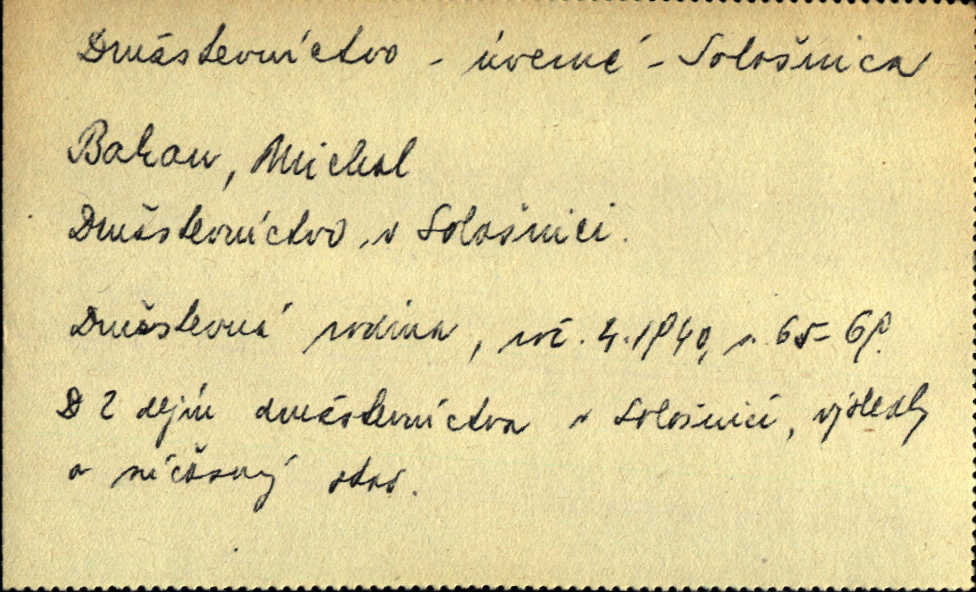 Družstevníctvo - úverné - Sološnica
Bakan, Michal
Družstevníctvo v Sološnici.
Družstevná rodina, roč. 4. 1940, s. 65-69.
Z dejín družstevníctva v Sološnici, výsledky
a súčasný stav.